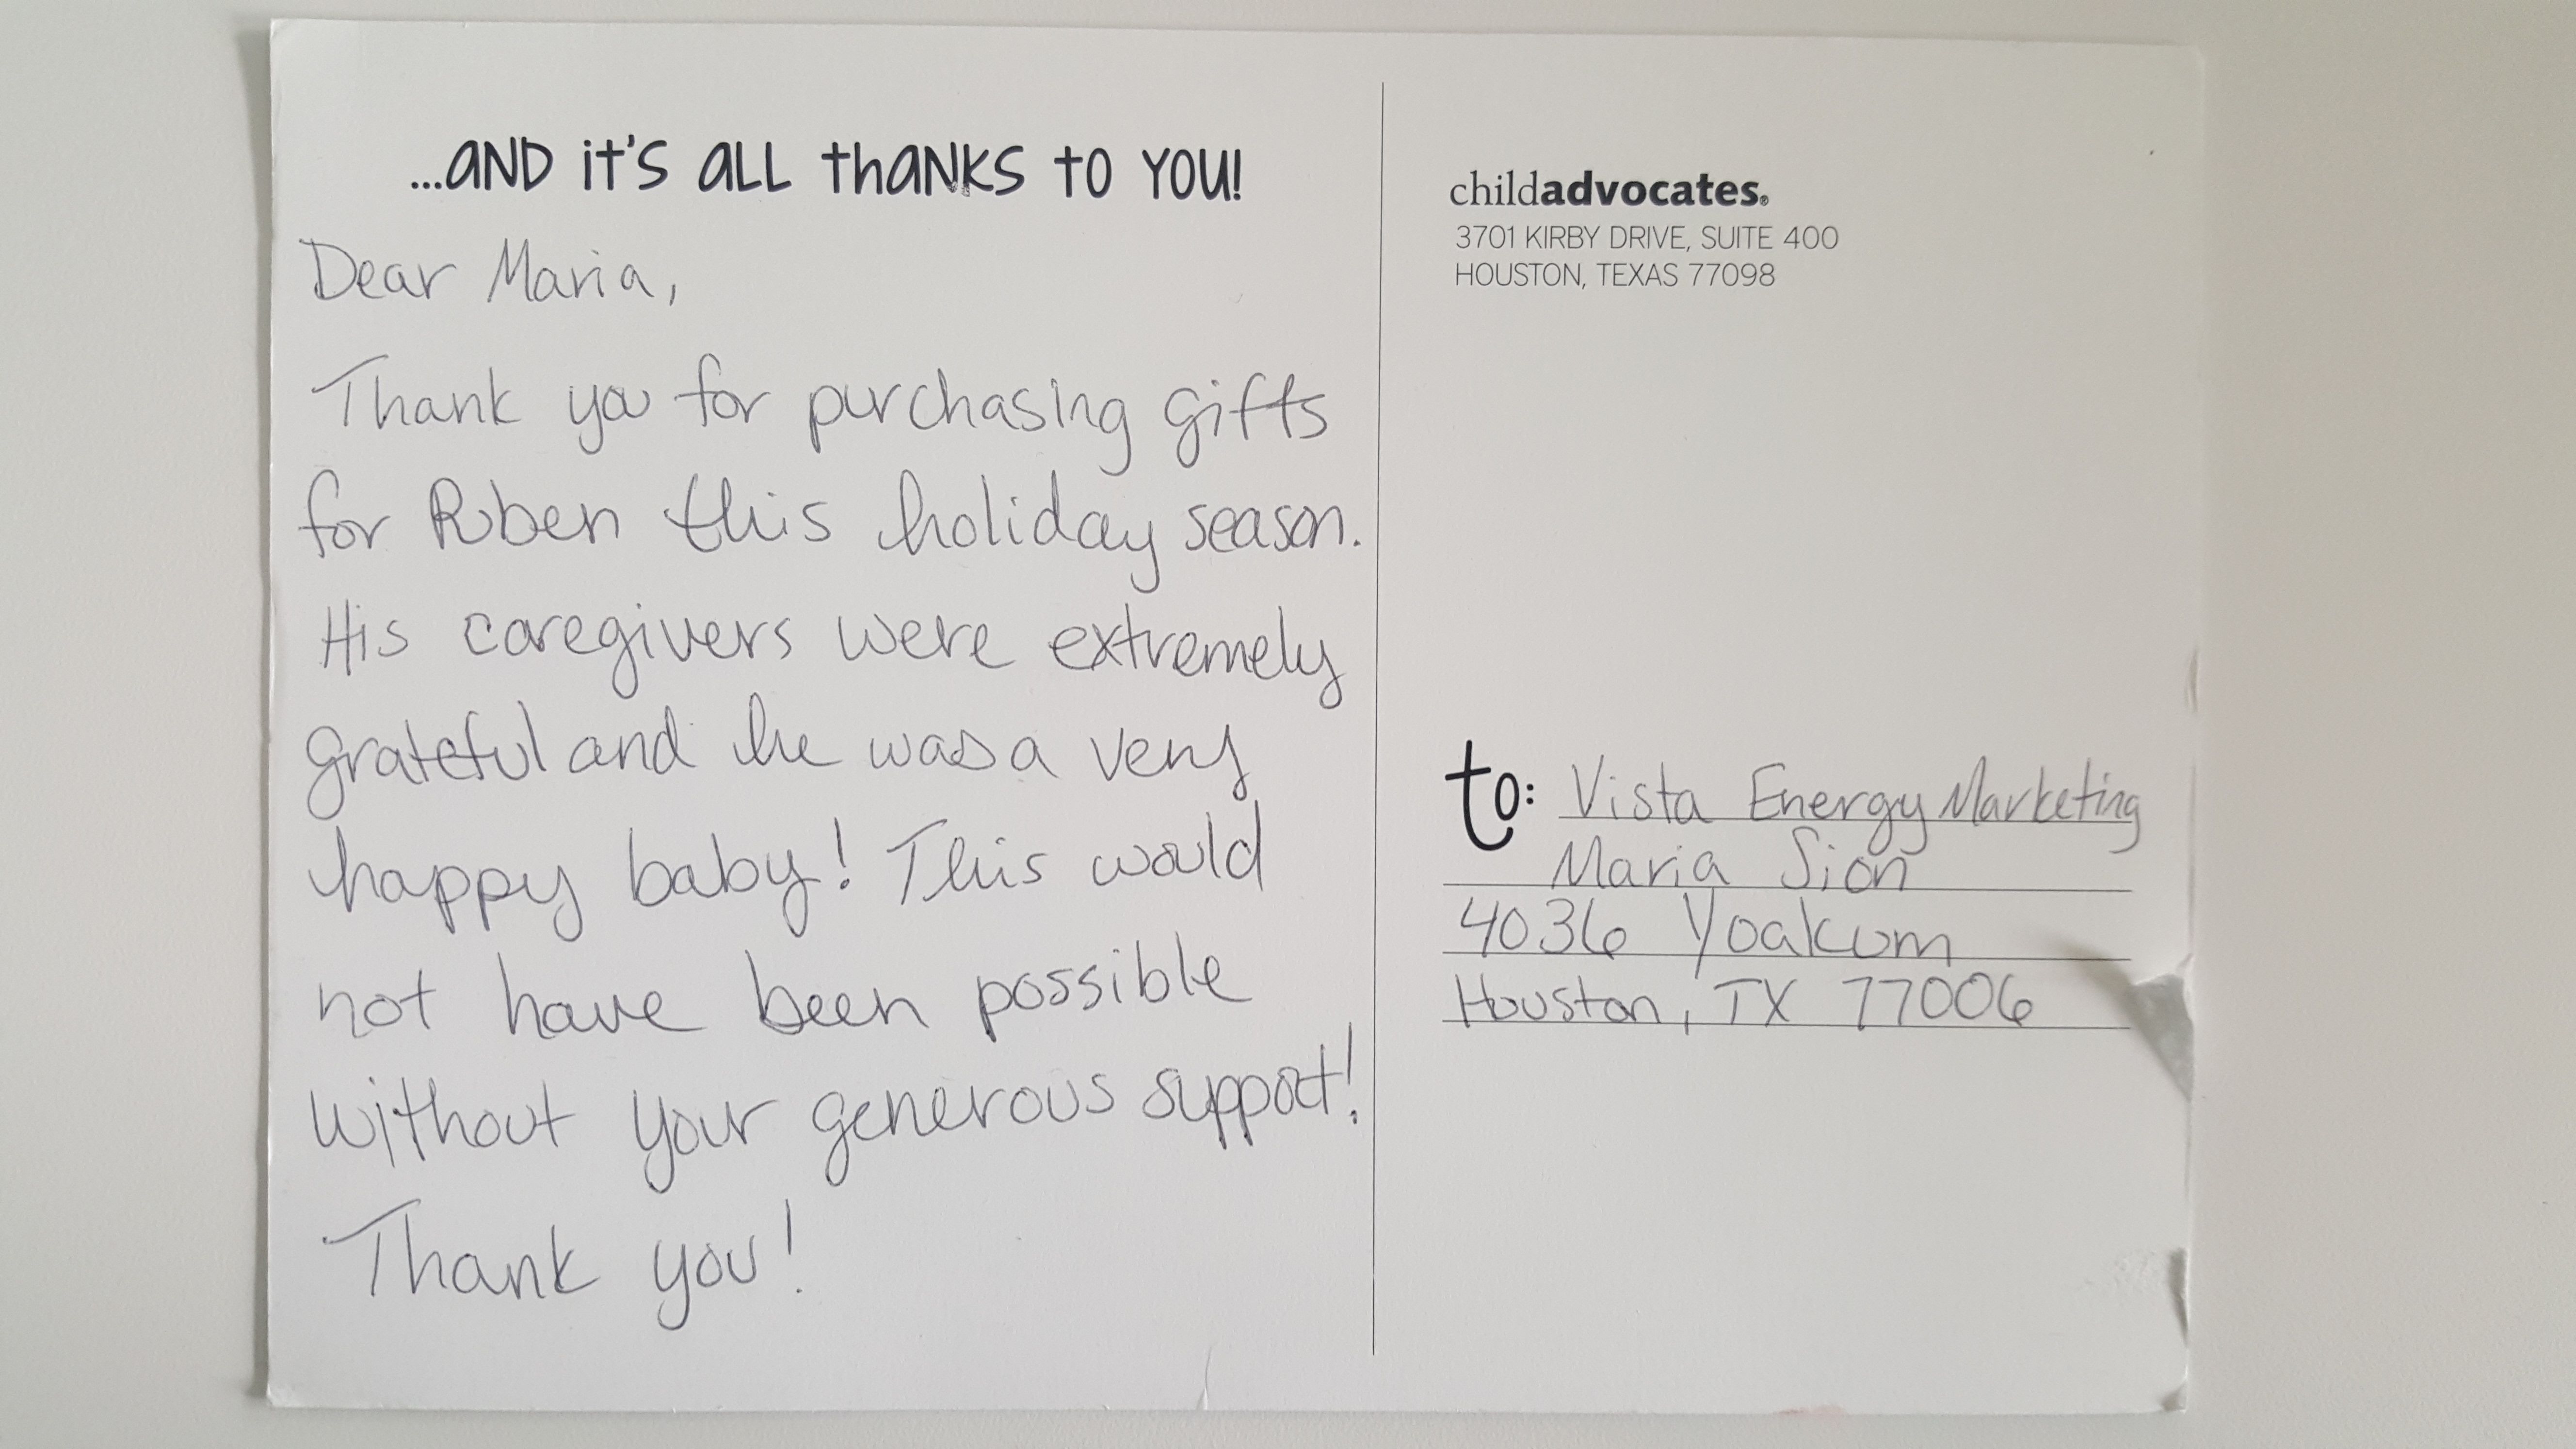 ...AND it's ALL thANKS to YOU!
Dear Maria,
Thank you for purchasing gifts
for Ruben this holiday season.
His caregivers were extremely
grateful and he was a very
happy baby! This would
not have been possible
without your generous support!
Thank you!
childadvocates®
3701 KIRBY DRIVE, SUITE 400
HOUSTON, TEXAS 77098
to: Vista Energy Marketing
Maria Sion
4036 Yoakum
Houston, TX 77006